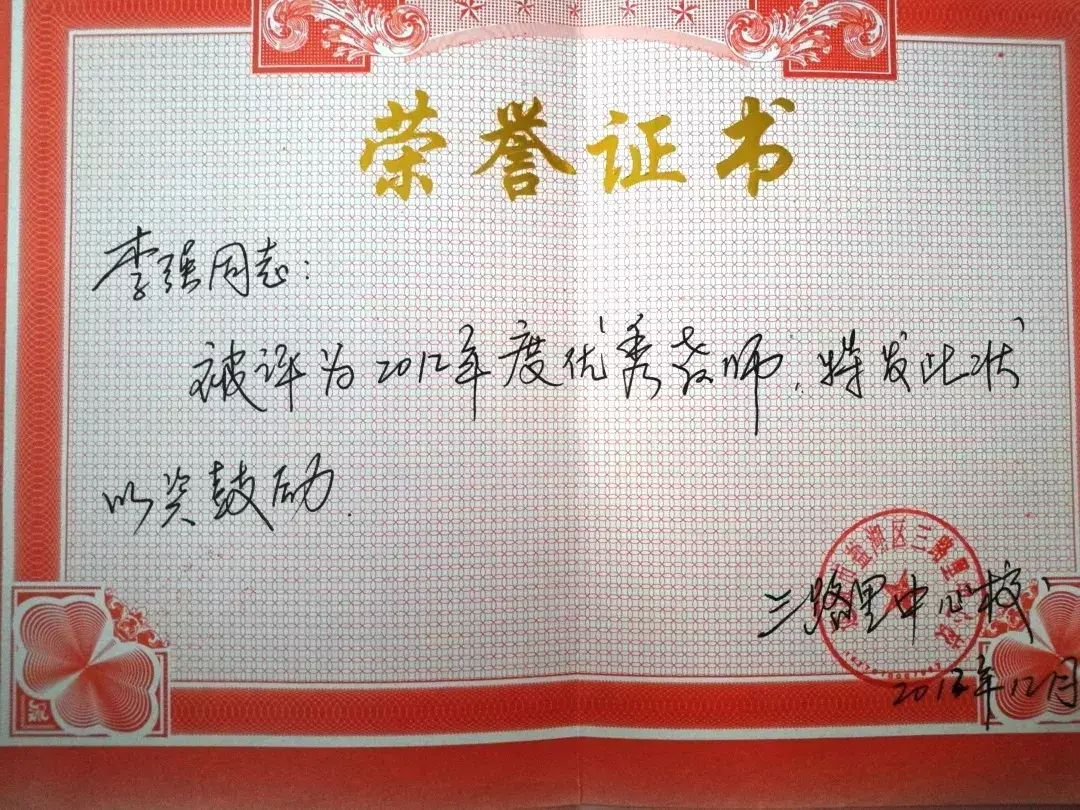 荣誉证书
李强同志:
被评为2012年度优秀教师,特发此状
以资鼓励.
市盐湖区三路里中心校
三路里中心校
2012年12月